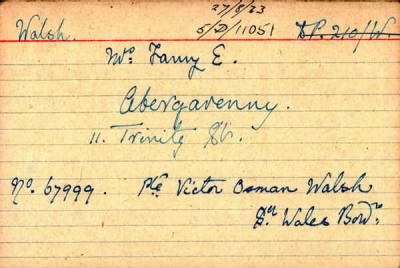 27/3/23
Walsh. 5/D/11051 D.P. 210/W.
Mrs Fanny E.
Abergavenny.
11. Trinity St.
No. 67999. Pte Victor Osman Walsh
Sth Wales Bords